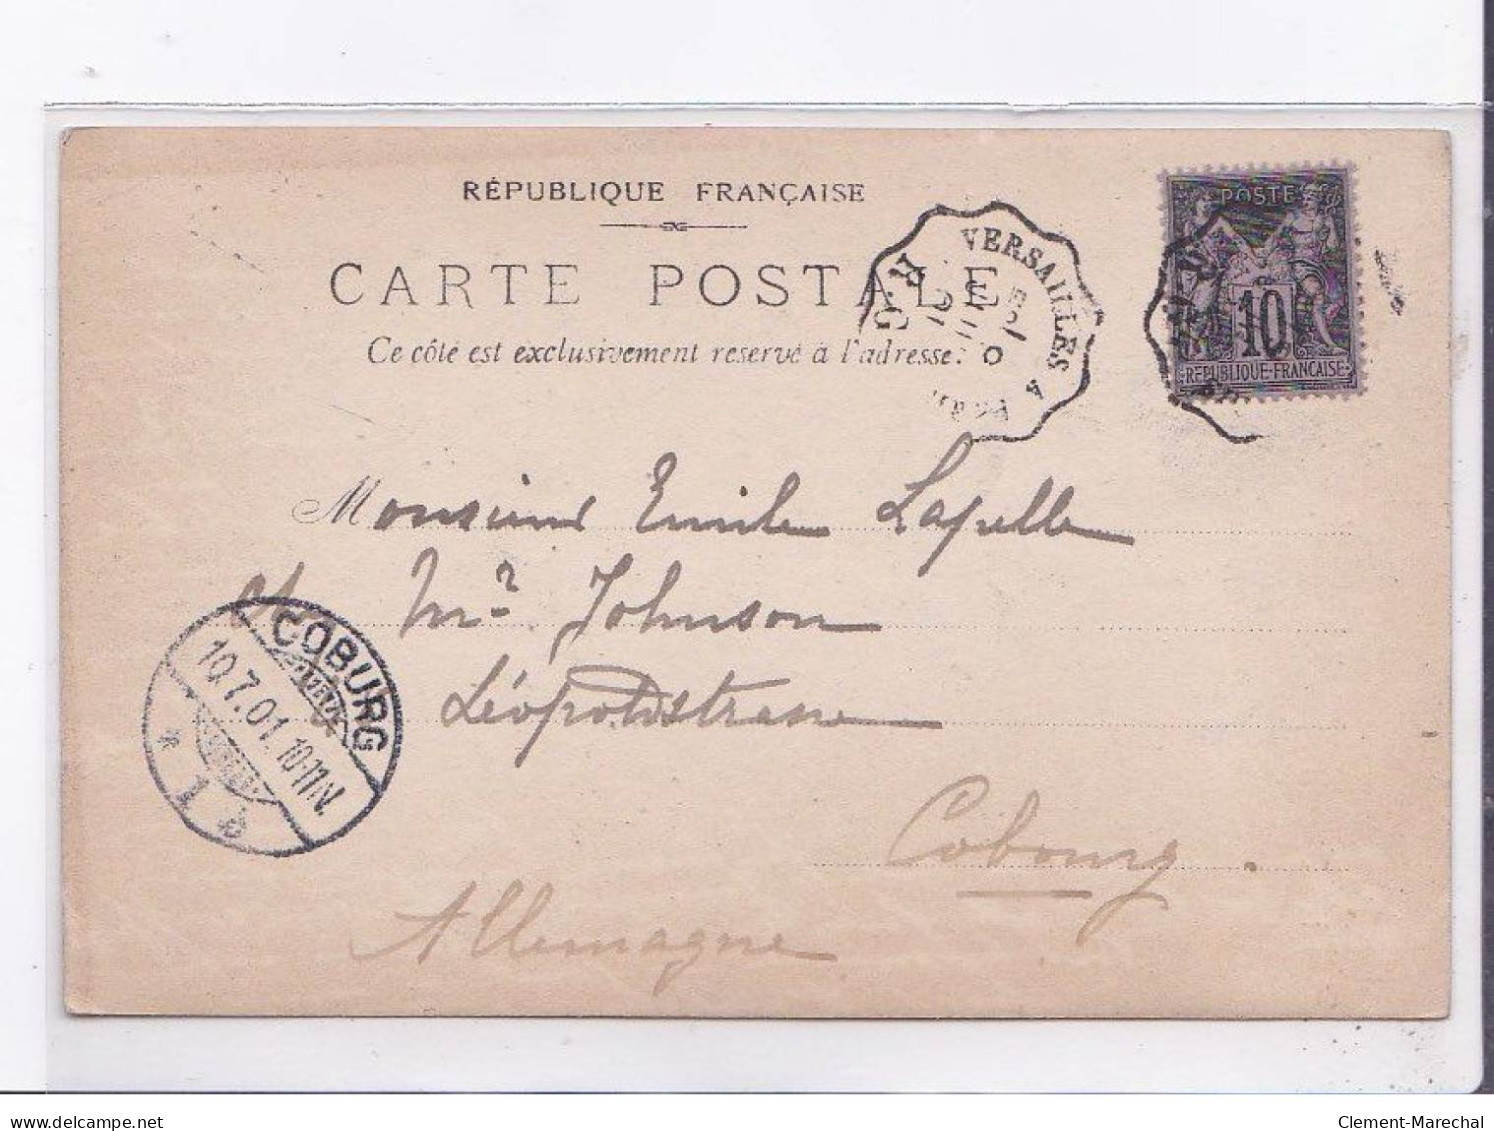 RÉPUBLIQUE FRANÇAISE
CARTE POSTALE
Ce côté est exclusivement reservé à l'adresse.
VERSAILLES A
R.G.
POSTE
10
REPUBLIQUE-FRANÇAISE
Monsieur Emile Lapelle
Mr Johnson
Léopoldstrasse
Cobourg.
Allemagne
COBURG
10.7.01.10-11N.
* 1 *
delcampe.net
Clement-Marechal